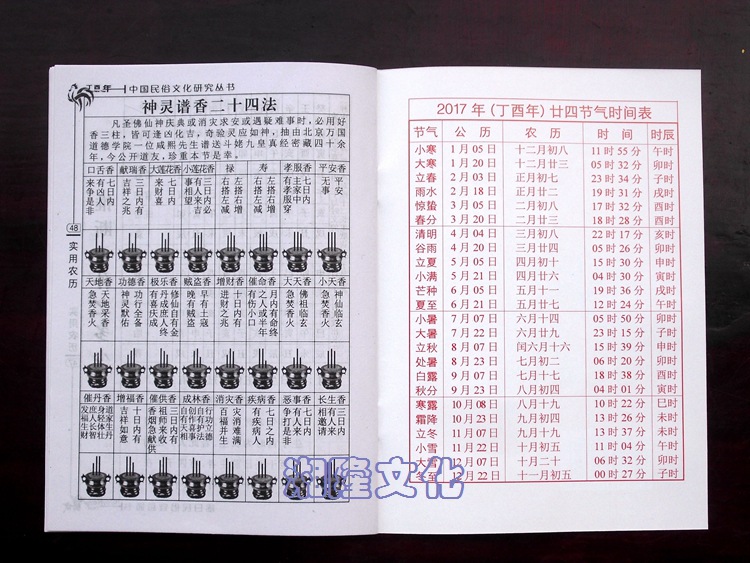 丁酉年 中国民俗文化研究丛书
神灵谱香二十四法
凡圣佛仙神庆典或消灾求安或遇疑难事时，必用好
香三柱，皆可逢凶化吉，奇验灵应如神，抽由北京万国
道德学院一位咸熙先生谱送斗姥九皇真经密藏四十余
年，今公开道友，珍重本节是幸。
口舌香 献瑞香 大莲花香 小莲花香 禄 寿 孝服香 平安香
七日内有人来争是非 三日内有吉祥之兆 七日内来财喜 三日内有人来相望事吉必 左搭右搭左增右减 左搭右搭左减右增 七日内家中有孝服穿 平安无事
48
实用农历
天地香 功德香 极乐香 贼盗香 增财香 催命香 大天香 小天香
天地采香急焚香火 功行全备神灵默佑 修仙自有金丹成庶人终有喜庆成 早有土寇晚有贼盗 十日内有进财之兆 月内有命终之人或半年有伤小口 佛祖临玄急焚香火 神仙临玄急焚香火
催丹香 增福香 催供香 成林香 消灾香 疾病香 恶事香 长生香
道家生丹身强体壮庶人长智发福生财 十日内有吉祥如意 三日内有祖师来收香烟急献供 行功立德自有护法创作喜事自有天相 灾消难满百福并生 七日之内有疾病人 七日内有人来争打是非 三日内有人来相邀请
2017年(丁酉年)廿四节气时间表
节气 公历 农历 时间 时辰
小寒 1月05日 十二月初八 11时55分 午时
大寒 1月20日 十二月廿三 05时32分 卯时
立春 2月03日 正月初七 23时34分 子时
雨水 2月18日 正月廿二 19时31分 戌时
惊蛰 3月05日 二月初八 17时32分 酉时
春分 3月20日 二月廿三 18时28分 酉时
清明 4月04日 三月初八 22时17分 亥时
谷雨 4月20日 三月廿四 05时26分 卯时
立夏 5月05日 四月初十 15时30分 申时
小满 5月21日 四月廿六 04时30分 寅时
芒种 6月05日 五月十一 19时36分 戌时
夏至 6月21日 五月廿七 12时24分 午时
小暑 7月07日 六月十四 05时50分 卯时
大暑 7月22日 六月廿九 23时15分 子时
立秋 8月07日 闰六月十六 15时39分 申时
处暑 8月23日 七月初二 06时20分 卯时
白露 9月07日 七月十七 18时38分 酉时
秋分 9月23日 八月初四 04时01分 寅时
寒露 10月08日 八月十九 10时22分 巳时
霜降 10月23日 九月初四 13时26分 未时
立冬 11月07日 九月十九 13时37分 未时
小雪 11月22日 十月初五 11时04分 午时
大雪 12月07日 十月二十 06时32分 卯时
冬至 12月22日 十一月初五 00时27分 子时
湘隆文化